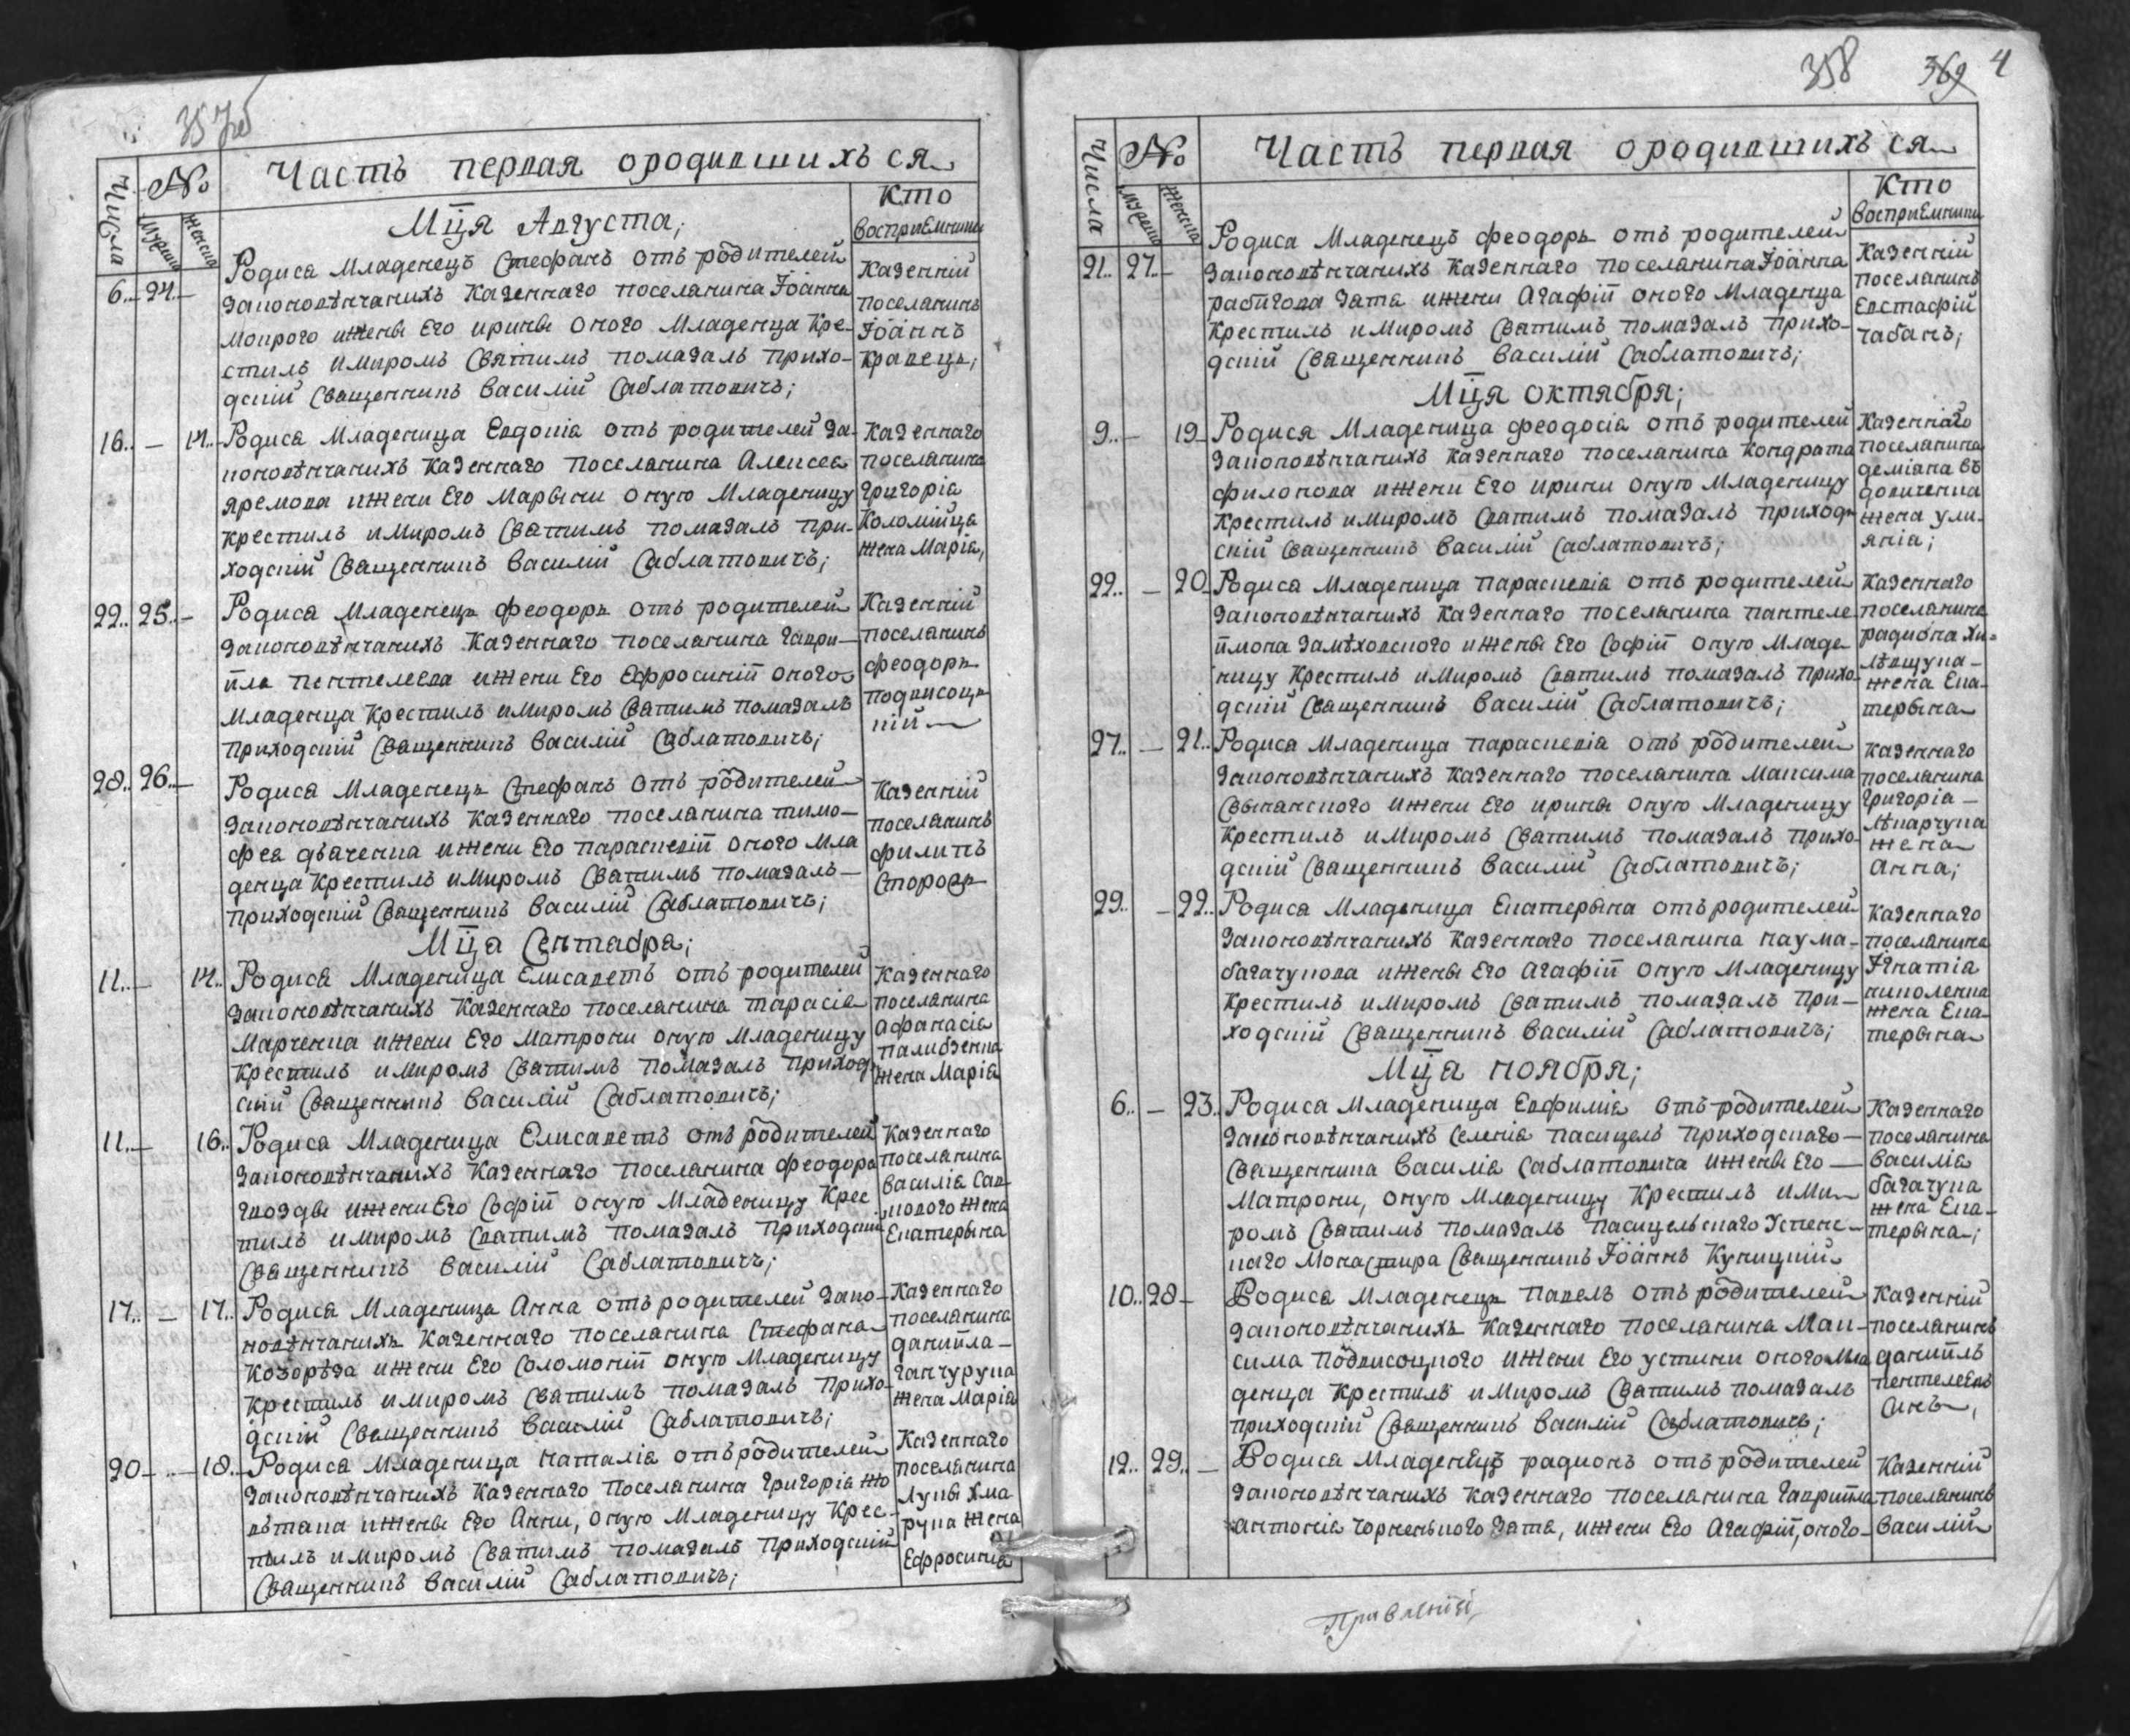 357об
Числа
№
Мужеска
Женска
Часть первая ородившихъ ся
Кто
восприемники
Мца Августа;
6.. 24..
Родиса Младенецъ Стефанъ отъ родителей
законовѣнчанихъ Казеннаго поселанина Іоанна
Мокрого ижены Его ирины оного Младенца Кре-
стилъ имиромъ Сватимъ помазалъ прихо-
дскій Сващенникъ Василій Саблатовичъ;
Казенній
поселанинъ
Іоаннъ
Кравецъ;
16.. — 14..
Родиса Младеница Евдокіа отъ родителей за-
коновѣнчанихъ Казеннаго поселанина Алексеа
Яремова ижени Его Марыни оную Младеницу
крестилъ имиромъ Сватимъ помазалъ при-
ходскій Сващенникъ Василій Саблатовичъ;
Казеннаго
поселанина
Григоріа
Коломійца
жена Маріа,
22.. 25.. —
Родиса Младенецъ феодоръ отъ родителей
законовѣнчанихъ Казеннаго поселанина Гаври-
ила пентелеева ижени Его Ефросиніи оного
Младенца Крестилъ имиромъ Сватимъ помазалъ
приходскій Сващенникъ Василій Саблатовичъ;
Казенній
поселанинъ
феодоръ
подвисоц-
кій
28.. 26.. —
Родиса Младенецъ Стефанъ отъ родителей
законовѣнчанихъ Казеннаго поселанина тимо-
феа дьаченка ижени Его параскевіи оного Мла
денца Крестилъ имиромъ Сватимъ помазалъ
приходскій Сващенникъ Василій Саблатовичъ;
Казенній
поселанинъ
филипъ
Сторожъ
Мца Сентабра;
11.. 14..
Родиса Младеница Елисаветъ отъ родителей
законовѣнчанихъ Казеннаго поселанина тарасіа
Марченка ижени Его Матрони оную Младеницу
Крестилъ имиромъ Сватимъ помазалъ приход
скій Сващенникъ Василій Саблатовичъ;
Казеннаго
поселанина
афанасіа
жена Маріа
11.. — 16..
Родиса Младеница Елисаветъ отъ родителей
законовѣнчанихъ Казеннаго поселанина феодора
гвозды ижени Его Софіи оную Младеницу Крес
тилъ имиромъ Сватимъ помазалъ приходскій
Сващенникъ Василій Саблатовичъ;
Казеннаго
поселанина
василіа Сав-
жена
Екатерына
17.. — 17..
Родиса Младеница Анна отъ родителей зако-
новѣнчанихъ Казеннаго поселанина Стефана
Козорѣза ижени Его Соломоніи оную Младеницу
Крестилъ имиромъ Сватимъ помазалъ прихо
дскій Сващенникъ Василій Саблатовичъ;
Казеннаго
поселанина
даниила
Ганчурука
жена Маріа
20 — 18..
Родиса Младеница наталіа отъ родителей
законовѣнчанихъ Казеннаго поселанина Григоріа жо
втака ижены Его Анни, оную Младеницу Крес-
тилъ имиромъ Сватимъ помазалъ приходскій
Сващенникъ Василій Саблатовичъ;
Казеннаго
поселанина
Луки хма
рука жена
Ефросиніа
358 369 4
Числа
№
Мужеска
Женска
Часть первая ородившихъ ся
Кто
восприемники
21.. 27.. —
Родиса Младенецъ феодоръ отъ родителей
законовѣнчанихъ Казеннаго поселанина Іоанна
зата ижени Агафіи оного Младенца
Крестилъ имиромъ Сватимъ помазалъ прихо-
дскій Сващенникъ Василій Саблатовичъ;
Казенній
поселанинъ
Евстафій
Чабанъ;
Мца октября;
9.. — 19
Родися Младеница феодосіа отъ родителей
законовѣнчанихъ Казеннаго поселанина кондрата
филонова ижени Его ирини оную Младеницу
Крестилъ имиромъ Сватимъ помазалъ приход
скій Сващенникъ Василій Саблатовичъ;
Казеннаго
поселанина
деміана въ
довиченка
жена ули-
аніа;
22.. — 20
Родиса Младеница параскевіа отъ родителей
законовѣнчанихъ Казеннаго поселанина пантеле
имона Замѣховского ижены Его Софіи оную Младе
ницу Крестилъ имиромъ Сватимъ помазалъ прихо
дскій Сващенникъ Василій Саблатовичъ;
Казеннаго
поселанина
радиона хи-
жена Ека-
терына
27.. — 21..
Родиса Младеница параскевіа отъ родителей
законовѣнчанихъ Казеннаго поселанина Максима
ижени Его ирины оную Младеницу
Крестилъ имиромъ Сватимъ помазалъ прихо
дскій Сващенникъ Василій Саблатовичъ;
Казеннаго
поселанина
Григоріа —
лѣкарчука
жена
анна;
29.. — 22..
Родиса Младеница Екатерына отъ родителей
законовѣнчанихъ Казеннаго поселанина наума-
багачукова ижены Его агафіи оную Младеницу
Крестилъ имиромъ Сватимъ помазалъ при-
ходскій Сващенникъ Василій Саблатовичъ;
Казеннаго
поселанина
Ігнатіа
николенка
жена Ека-
терына
Мца ноября;
6.. — 23..
Родиса Младеница Евфиміа отъ родителей
законовѣнчанихъ Селеніа пасицелъ приходскаго —
Сващенника Василіа Саблатовича ижены Его —
Матрони, оную Младеницу Крестилъ ими
ромъ Сватимъ помазалъ пасицельскаго Успенс-
каго Монастира Сващенникъ Іоаннъ Куницкій
Казеннаго
поселанина
василіа
багачука
жена Ека-
терына;
10.. 28 —
Родиса Младенецъ павелъ отъ родителей
законовѣнчанихъ Казеннаго поселанина Мак-
сима подвисоцкого ижени Его устини оного мла
денца Крестилъ имиромъ Сватимъ помазалъ
приходскій Сващенникъ Василій Саблатовичъ;
Казенній
поселанинъ
даниилъ
12.. 29.. —
Родиса Младенецъ радионъ отъ родителей
законовѣнчанихъ Казеннаго поселанина Гавриила
антоніа зата, ижени Его Агафіи, оного
Казенній
поселанинъ
василій